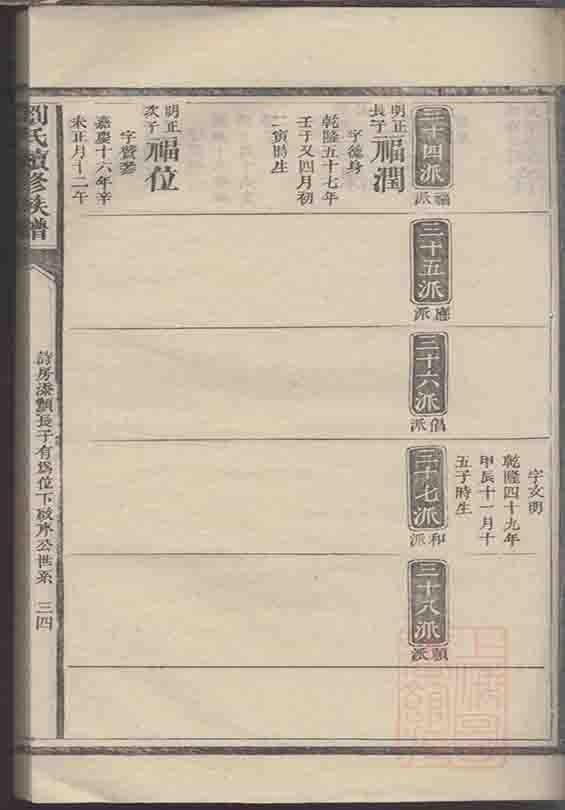 字文明
乾隆四十九年
甲辰十一月十
五子時生
三十四派
福派
明正長子
福潤
字德身
乾隆五十七年
壬子又四月初
一寅時生
明正次子
福位
字贊參
嘉慶十六年辛
未正月十二午
三十五派
應派
三十六派
倡派
三十七派
和派
三十八派
顯派
劉氏續修族譜
詩房添顯長子有為位下啟序公世系
三四